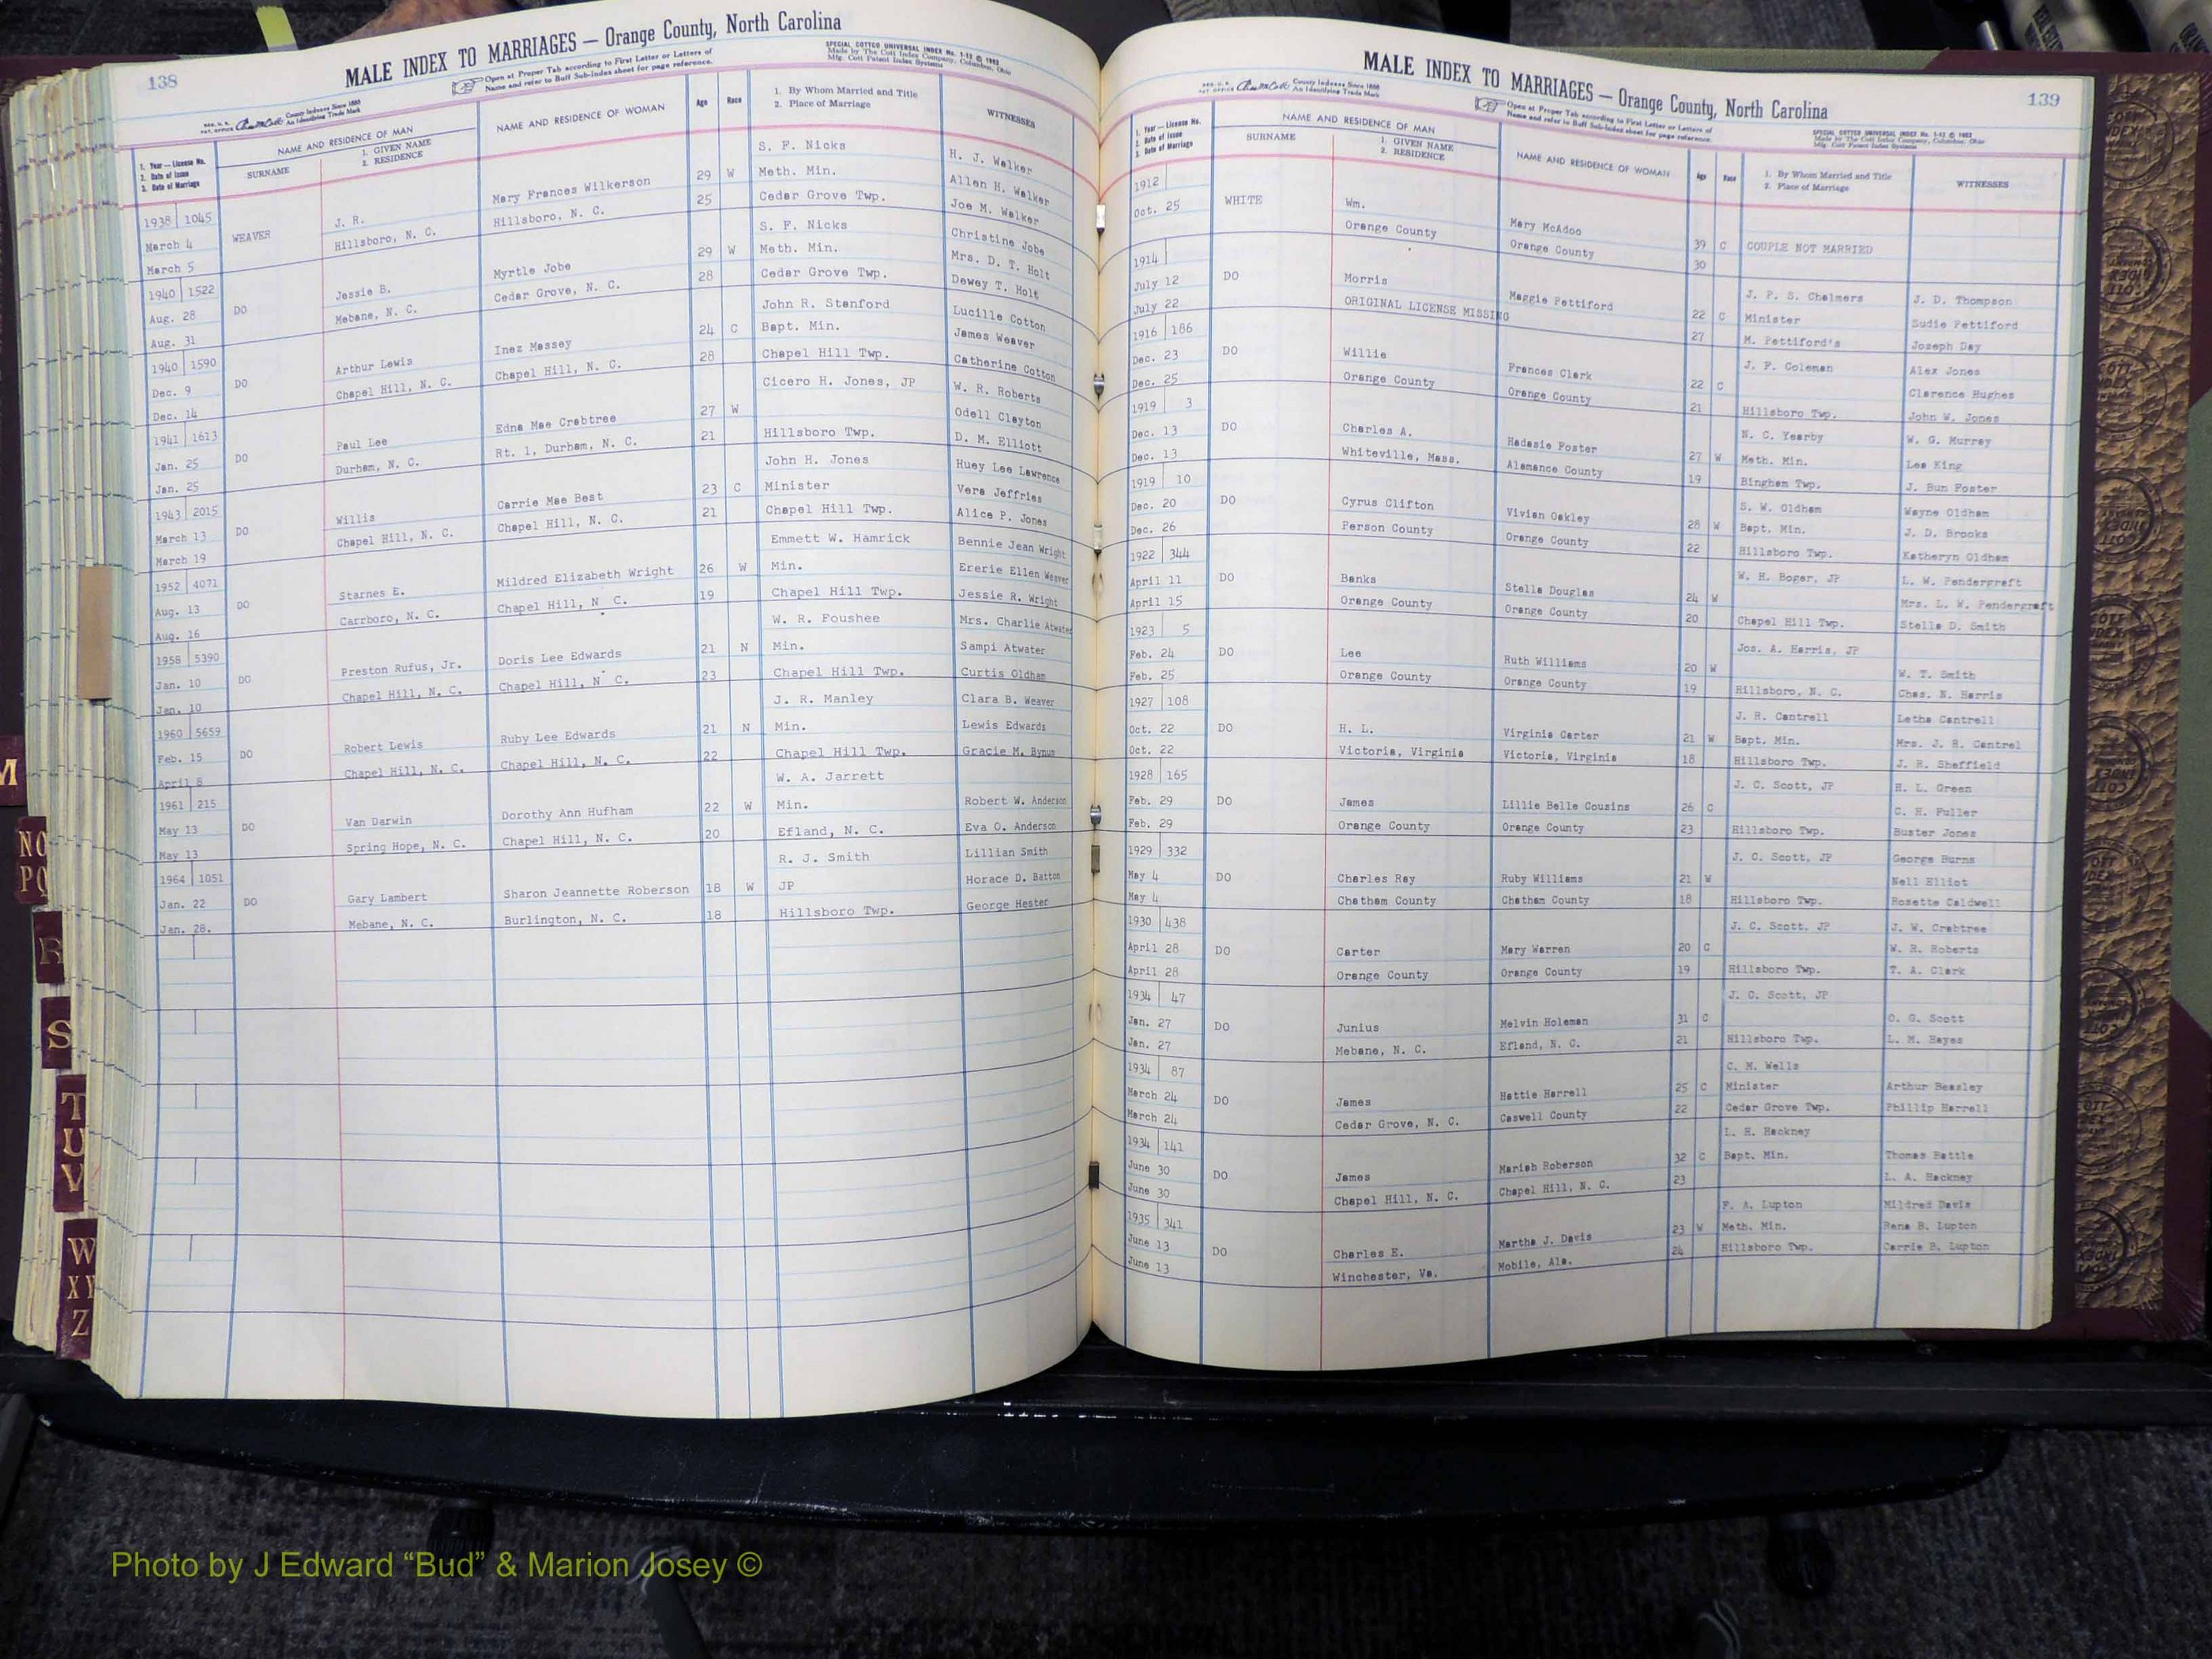 138
MALE INDEX TO MARRIAGES — Orange County, North Carolina
Open at Proper Tab according to First Letter or Letters of
Name and refer to Buff Sub-index sheet for page reference.
SPECIAL COTTCO UNIVERSAL INDEX No. 1-12 © 1962
Made by The Cott Index Company, Columbus, Ohio
Mfg. Cott Patent Index Systems
County Indexes Since 1888
An Identifying Trade Mark
1. Year — License No.
2. Date of Issue
3. Date of Marriage
NAME AND RESIDENCE OF MAN
SURNAME
1. GIVEN NAME
2. RESIDENCE
NAME AND RESIDENCE OF WOMAN
Age
Race
1. By Whom Married and Title
2. Place of Marriage
WITNESSES
1938 1045 J. R. Mary Frances Wilkerson 29 W S. F. Nicks H. J. Walker
March 4 WEAVER Hillsboro, N. C. Hillsboro, N. C. 25 Meth. Min. Allen H. Walker
March 5 Cedar Grove Twp. Joe M. Walker
1940 1522 Jessie B. Myrtle Jobe 29 W S. F. Nicks Christine Jobe
Aug. 28 DO Mebane, N. C. Cedar Grove, N. C. 28 Meth. Min. Mrs. D. T. Holt
Aug. 31 Cedar Grove Twp. Dewey T. Holt
1940 1590 Arthur Lewis Inez Massey 24 C John R. Stanford Lucille Cotton
Dec. 9 DO Chapel Hill, N. C. Chapel Hill, N. C. 28 Bapt. Min. James Weaver
Dec. 14 Chapel Hill Twp. Catherine Cotton
1941 1613 Paul Lee Edna Mae Crabtree 27 W Cicero H. Jones, JP W. R. Roberts
Jan. 25 DO Durham, N. C. Rt. 1, Durham, N. C. 21 Odell Clayton
Jan. 25 Hillsboro Twp. D. M. Elliott
1943 2015 Willis Carrie Mae Best 23 C John H. Jones Huey Lee Lawrence
March 13 DO Chapel Hill, N. C. Chapel Hill, N. C. 21 Minister Vera Jeffries
March 19 Chapel Hill Twp. Alice P. Jones
1952 4071 Starnes E. Mildred Elizabeth Wright 26 W Emmett W. Hamrick Bennie Jean Wright
Aug. 13 DO Carrboro, N. C. Chapel Hill, N C. 19 Min. Ererie Ellen Weaver
Aug. 16 Chapel Hill Twp. Jessie R. Wright
1958 5390 Preston Rufus, Jr. Doris Lee Edwards 21 N W. R. Foushee Mrs. Charlie Atwater
Jan. 10 DO Chapel Hill, N. C. Chapel Hill, N C. 23 Min. Sampi Atwater
Jan. 10 Chapel Hill Twp. Curtis Oldham
1960 5659 Robert Lewis Ruby Lee Edwards 21 N J. R. Manley Clara B. Weaver
Feb. 15 DO Chapel Hill, N. C. Chapel Hill, N. C. 22 Min. Lewis Edwards
April 8 Chapel Hill Twp. Gracie M. Bynum
1961 215 Van Darwin Dorothy Ann Hufham 22 W W. A. Jarrett
May 13 DO Spring Hope, N. C. Chapel Hill, N. C. 20 Min. Robert W. Anderson
May 13 Efland, N. C. Eva O. Anderson
1964 1051 Gary Lambert Sharon Jeannette Roberson 18 W R. J. Smith Lillian Smith
Jan. 22 DO Mebane, N. C. Burlington, N. C. 18 JP Horace D. Batton
Jan. 28. Hillsboro Twp. George Hester
139
MALE INDEX TO MARRIAGES — Orange County, North Carolina
County Indexes Since 1888
An Identifying Trade Mark
Open at Proper Tab according to First Letter or Letters of
Name and refer to Buff Sub-index sheet for page reference.
SPECIAL COTTCO UNIVERSAL INDEX No. 1-12 © 1962
Made by The Cott Index Company, Columbus, Ohio
Mfg. Cott Patent Index Systems
1. Year — License No.
2. Date of Issue
3. Date of Marriage
NAME AND RESIDENCE OF MAN
SURNAME
1. GIVEN NAME
2. RESIDENCE
NAME AND RESIDENCE OF WOMAN
Age
Race
1. By Whom Married and Title
2. Place of Marriage
WITNESSES
1912 Wm. Mary McAdoo 39 C COUPLE NOT MARRIED
Oct. 25 WHITE Orange County Orange County 30
1914 Morris Maggie Pettiford 22 C J. P. S. Chalmers J. D. Thompson
July 12 DO ORIGINAL LICENSE MISSING 27 Minister Sudie Pettiford
July 22 M. Pettiford's Joseph Day
1916 186 Willie Frances Clark 22 C J. P. Coleman Alex Jones
Dec. 23 DO Orange County Orange County 21 Clarence Hughes
Dec. 25 Hillsboro Twp. John W. Jones
1919 3 Charles A. Hadasie Foster 27 W N. C. Yearby W. G. Murray
Dec. 13 DO Whiteville, Mass. Alamance County 19 Meth. Min. Lee King
Dec. 13 Bingham Twp. J. Bun Foster
1919 10 Cyrus Clifton Vivian Oakley 28 W S. W. Oldham Wayne Oldham
Dec. 20 DO Person County Orange County 22 Bapt. Min. J. D. Brooks
Dec. 26 Hillsboro Twp. Katheryn Oldham
1922 344 Banks Stella Douglas 24 W W. H. Boger, JP L. W. Pendergraft
April 11 DO Orange County Orange County 20 Mrs. L. W. Pendergraft
April 15 Chapel Hill Twp. Stella D. Smith
1923 5 Lee Ruth Williams 20 W Jos. A. Harris, JP
Feb. 24 DO Orange County Orange County 19 W. T. Smith
Feb. 25 Hillsboro, N. C. Chas. N. Harris
1927 108 H. L. Virginia Carter 21 W J. R. Cantrell Letha Cantrell
Oct. 22 DO Victoria, Virginia Victoria, Virginia 18 Bapt. Min. Mrs. J. R. Cantrel
Oct. 22 Hillsboro Twp. J. R. Sheffield
1928 165 James Lillie Belle Cousins 26 C J. C. Scott, JP H. L. Green
Feb. 29 DO Orange County Orange County 23 C. H. Fuller
Feb. 29 Hillsboro Twp. Buster Jones
1929 332 Charles Ray Ruby Williams 21 W J. C. Scott, JP George Burns
May 4 DO Chatham County Chatham County 18 Nell Elliot
May 4 Hillsboro Twp. Rosette Caldwell
1930 438 Carter Mary Warren 20 C J. C. Scott, JP J. W. Crabtree
April 28 DO Orange County Orange County 19 W. R. Roberts
April 28 Hillsboro Twp. T. A. Clark
1934 47 Junius Melvin Holeman 31 C J. C. Scott, JP
Jan. 27 DO Mebane, N. C. Efland, N. C. 21 O. G. Scott
Jan. 27 Hillsboro Twp. L. M. Hayes
1934 87 James Hattie Harrell 25 C C. M. Wells
March 24 DO Cedar Grove, N. C. Caswell County 22 Minister Arthur Beasley
March 24 Cedar Grove Twp. Phillip Harrell
1934 141 James Mariah Roberson 32 C L. H. Hackney
June 30 DO Chapel Hill, N. C. Chapel Hill, N. C. 23 Bapt. Min. Thomas Battle
June 30 L. A. Hackney
1935 341 Charles E. Martha J. Davis 23 W F. A. Lupton Mildred Davis
June 13 DO Winchester, Va. Mobile, Ala. 24 Meth. Min. Rena B. Lupton
June 13 Hillsboro Twp. Carrie B. Lupton
M
NO
PQ
R
S
T
U
V
W
XY
Z
Photo by J Edward “Bud” & Marion Josey ©